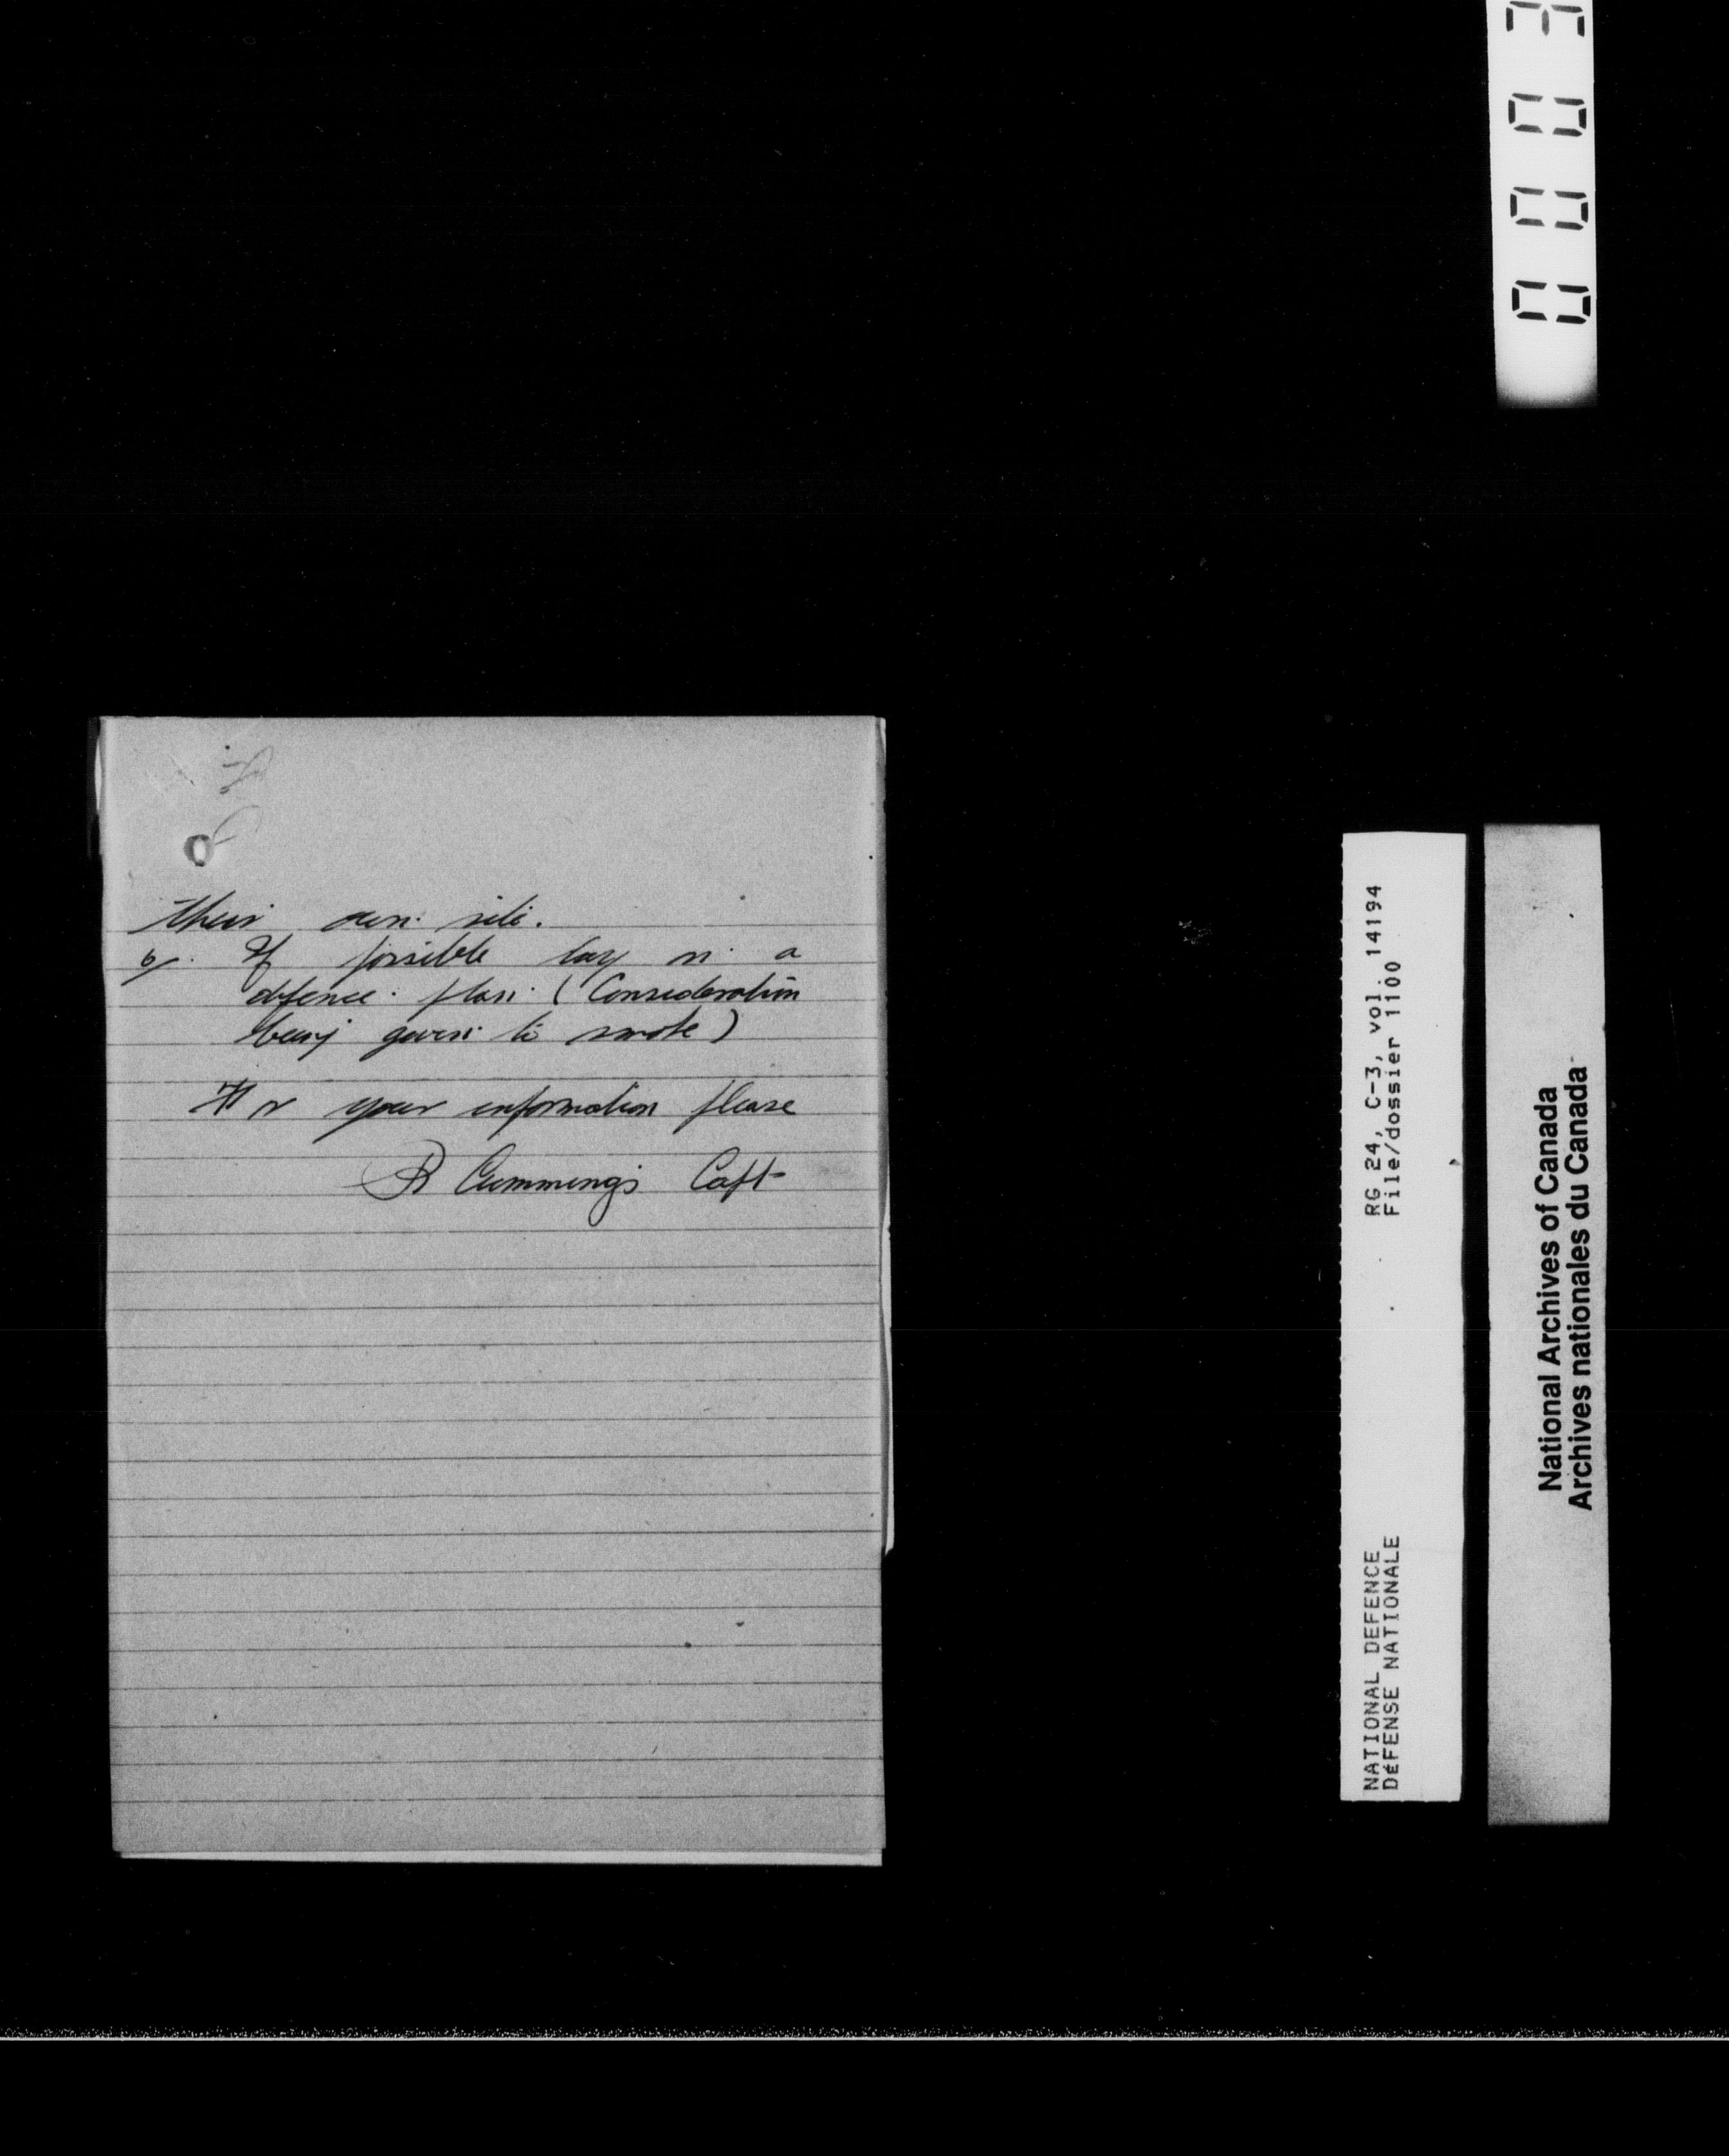 their own site.
6/. If possible lay on a
defence plan (Consideration
being given to smoke)
For your information please
R Cummings Capt
RG 24, C-3, vol. 14194
File/dossier 1100
NATIONAL DEFENCE
DÉFENSE NATIONALE
National Archives of Canada
Archives nationales du Canada
0003